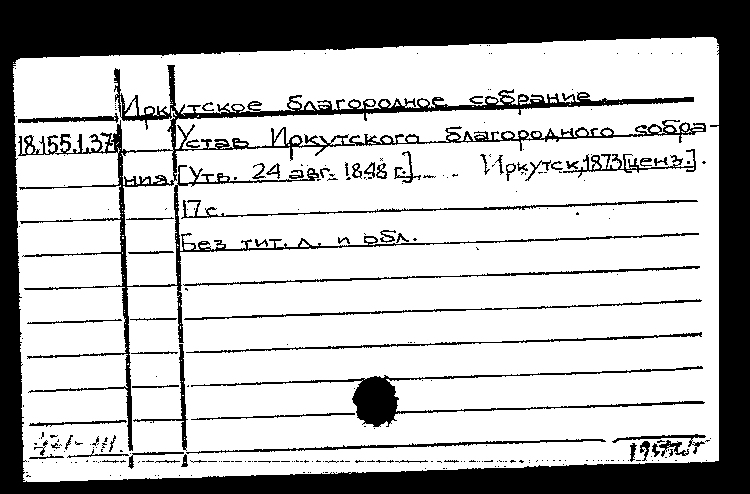 Иркутское благородное собрание.
18.155.1.371 Устав Иркутского благородного собра-
ния. [Утв. 24 авг. 1848 г.] Иркутск, 1873 [ценз.].
17 с.
Без тит. л. и обл.